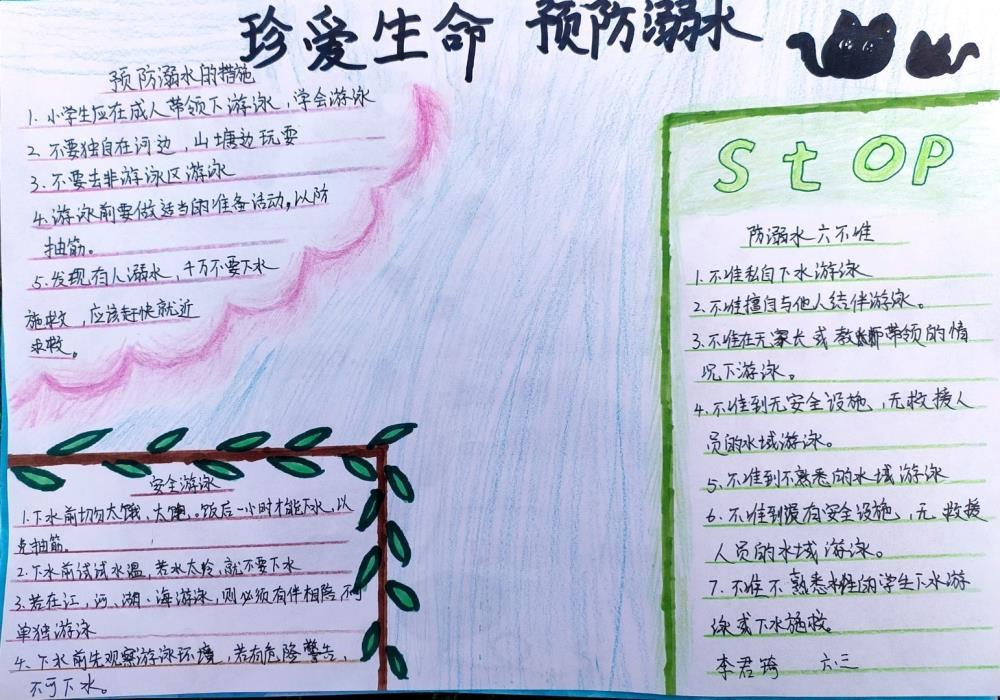 珍爱生命 预防溺水
预防溺水的措施
1. 小学生应在成人带领下游泳，学会游泳
2. 不要独自在河边，山塘边玩耍
3. 不要去非游泳区游泳
4. 游泳前要做适当的准备活动，以防
抽筋。
5. 发现有人溺水，千万不要下水
施救，应该赶快就近
求救。
安全游泳
1. 下水前切勿太饿、太饱。饭后一小时才能下水，以
免抽筋。
2. 下水前试试水温，若水太冷，就不要下水
3. 若在江、河、湖、海游泳，则必须有伴相陪不
单独游泳
4. 下水前先观察游泳环境，若有危险警告，
不可下水。
StOP
防溺水六不准
1. 不准私自下水游泳
2. 不准擅自与他人结伴游泳。
3. 不准在无家长或教师带领的情
况下游泳。
4. 不准到无安全设施，无救援人
员的水域游泳。
5. 不准到不熟悉的水域游泳
6. 不准到没有安全设施，无救援
人员的水域游泳。
7. 不准不熟悉水性的学生下水游
泳或下水施救。
李君琦 六.三